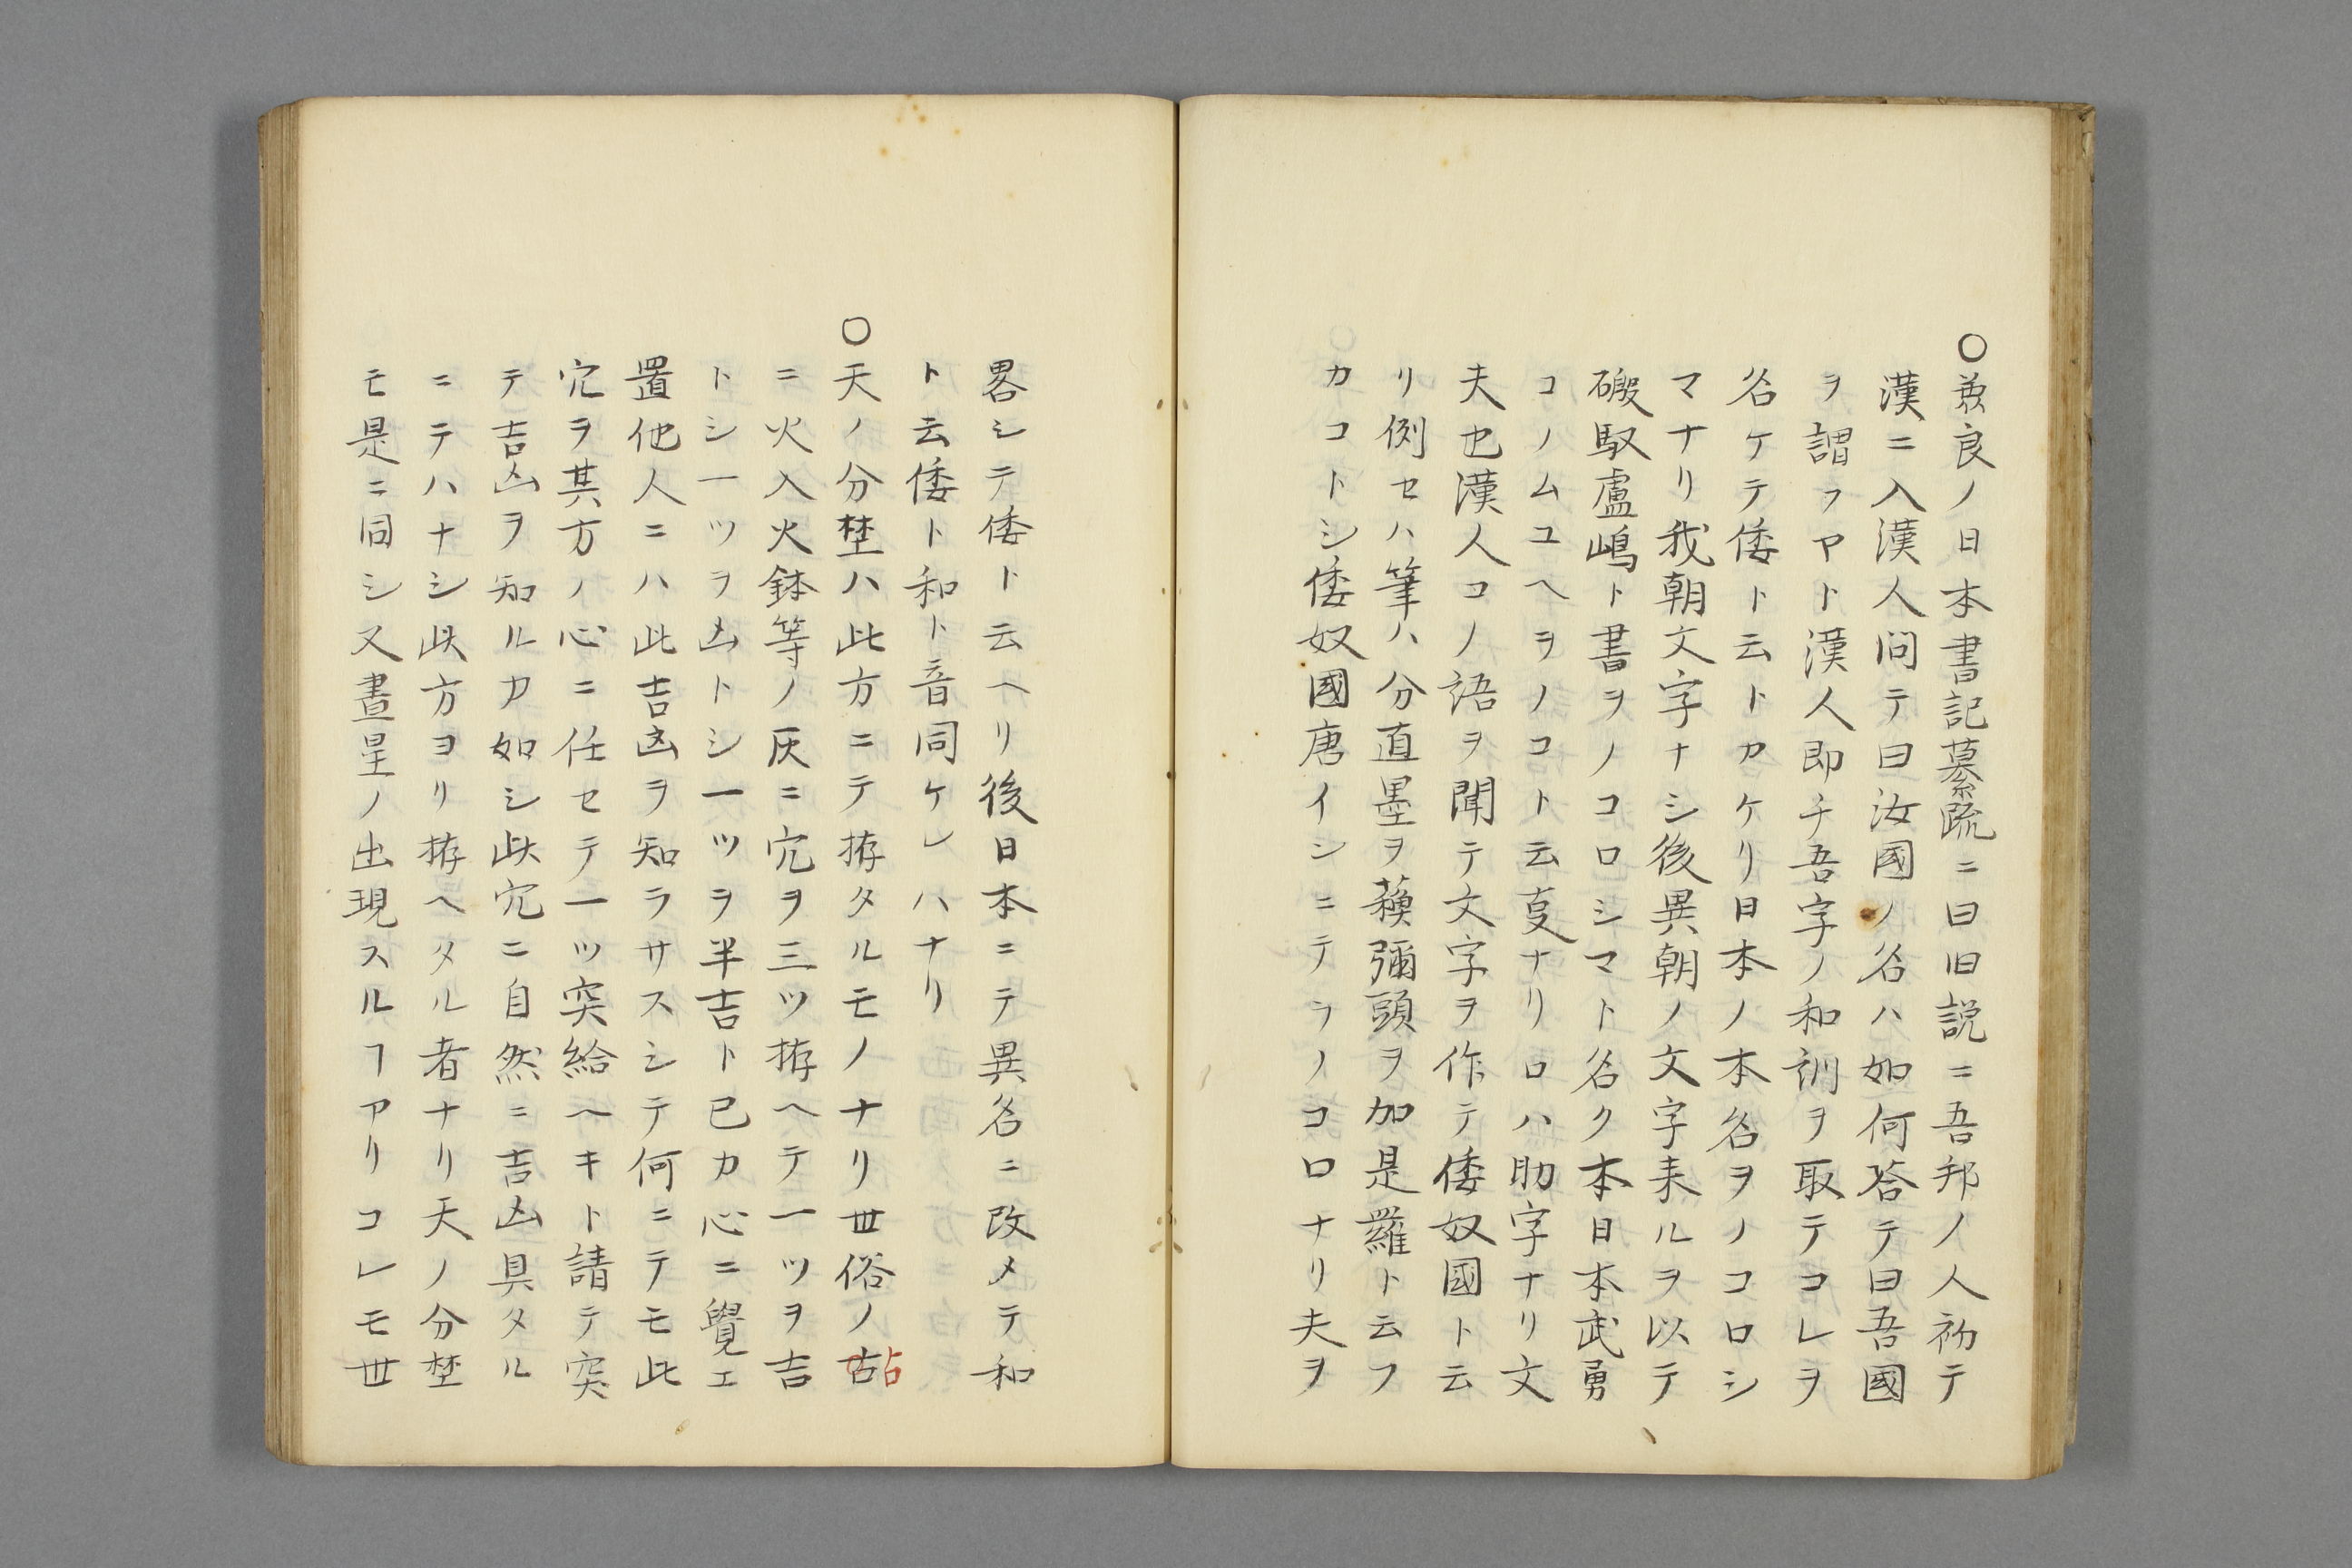 ○兼良ノ日本書記纂疏ニ曰旧説ニ吾邦ノ人初テ
漢ニ入漢人問テ曰汝國ノ名ハ如何答テ曰吾國
ヲ謂フヤト漢人即チ吾字ノ和訓ヲ取テコレヲ
名ケテ倭ト云トカケリ日本ノ本名ヲノコロシ
マナリ我朝文字ナシ後異朝ノ文字来ルヲ以テ
磤馭盧嶋ト書ヲノコロシマト名ク本日本武勇
コノムユヘヲノコト云亊ナリロハ助字ナリ文
夫也漢人コノ語ヲ聞テ文字ヲ作テ倭奴國ト云
リ例セハ筆ハ分直墨ヲ蘓彌頭ヲ加是羅ト云フ
カコトシ倭奴國唐イシニテヲノコロナリ夫ヲ
畧シテ倭ト云ヘリ後日本ニテ異名ニ改メテ和
ト云倭ト和ト音同ケレハナリ
○天ノ分埜ハ此方ニテ拵タルモノナリ世俗ノ占
ニ火入火鉢等ノ灰ニ穴ヲ三ツ拵ヘテ一ツヲ吉
トシ一ツヲ凶トシ一ツヲ半吉ト已カ心ニ覺エ
置他人ニハ此吉凶ヲ知ラサスシテ何ニテモ此
穴ヲ其方ノ心ニ任セテ一ツ突給ヘキト請テ突
テ吉凶ヲ知ルカ如シ此穴ニ自然ニ吉凶具タル
ニテハナシ此方ヨリ拵ヘタル者ナリ天ノ分埜
モ是ニ同シ又晝星ノ出現スルヿアリコレモ世